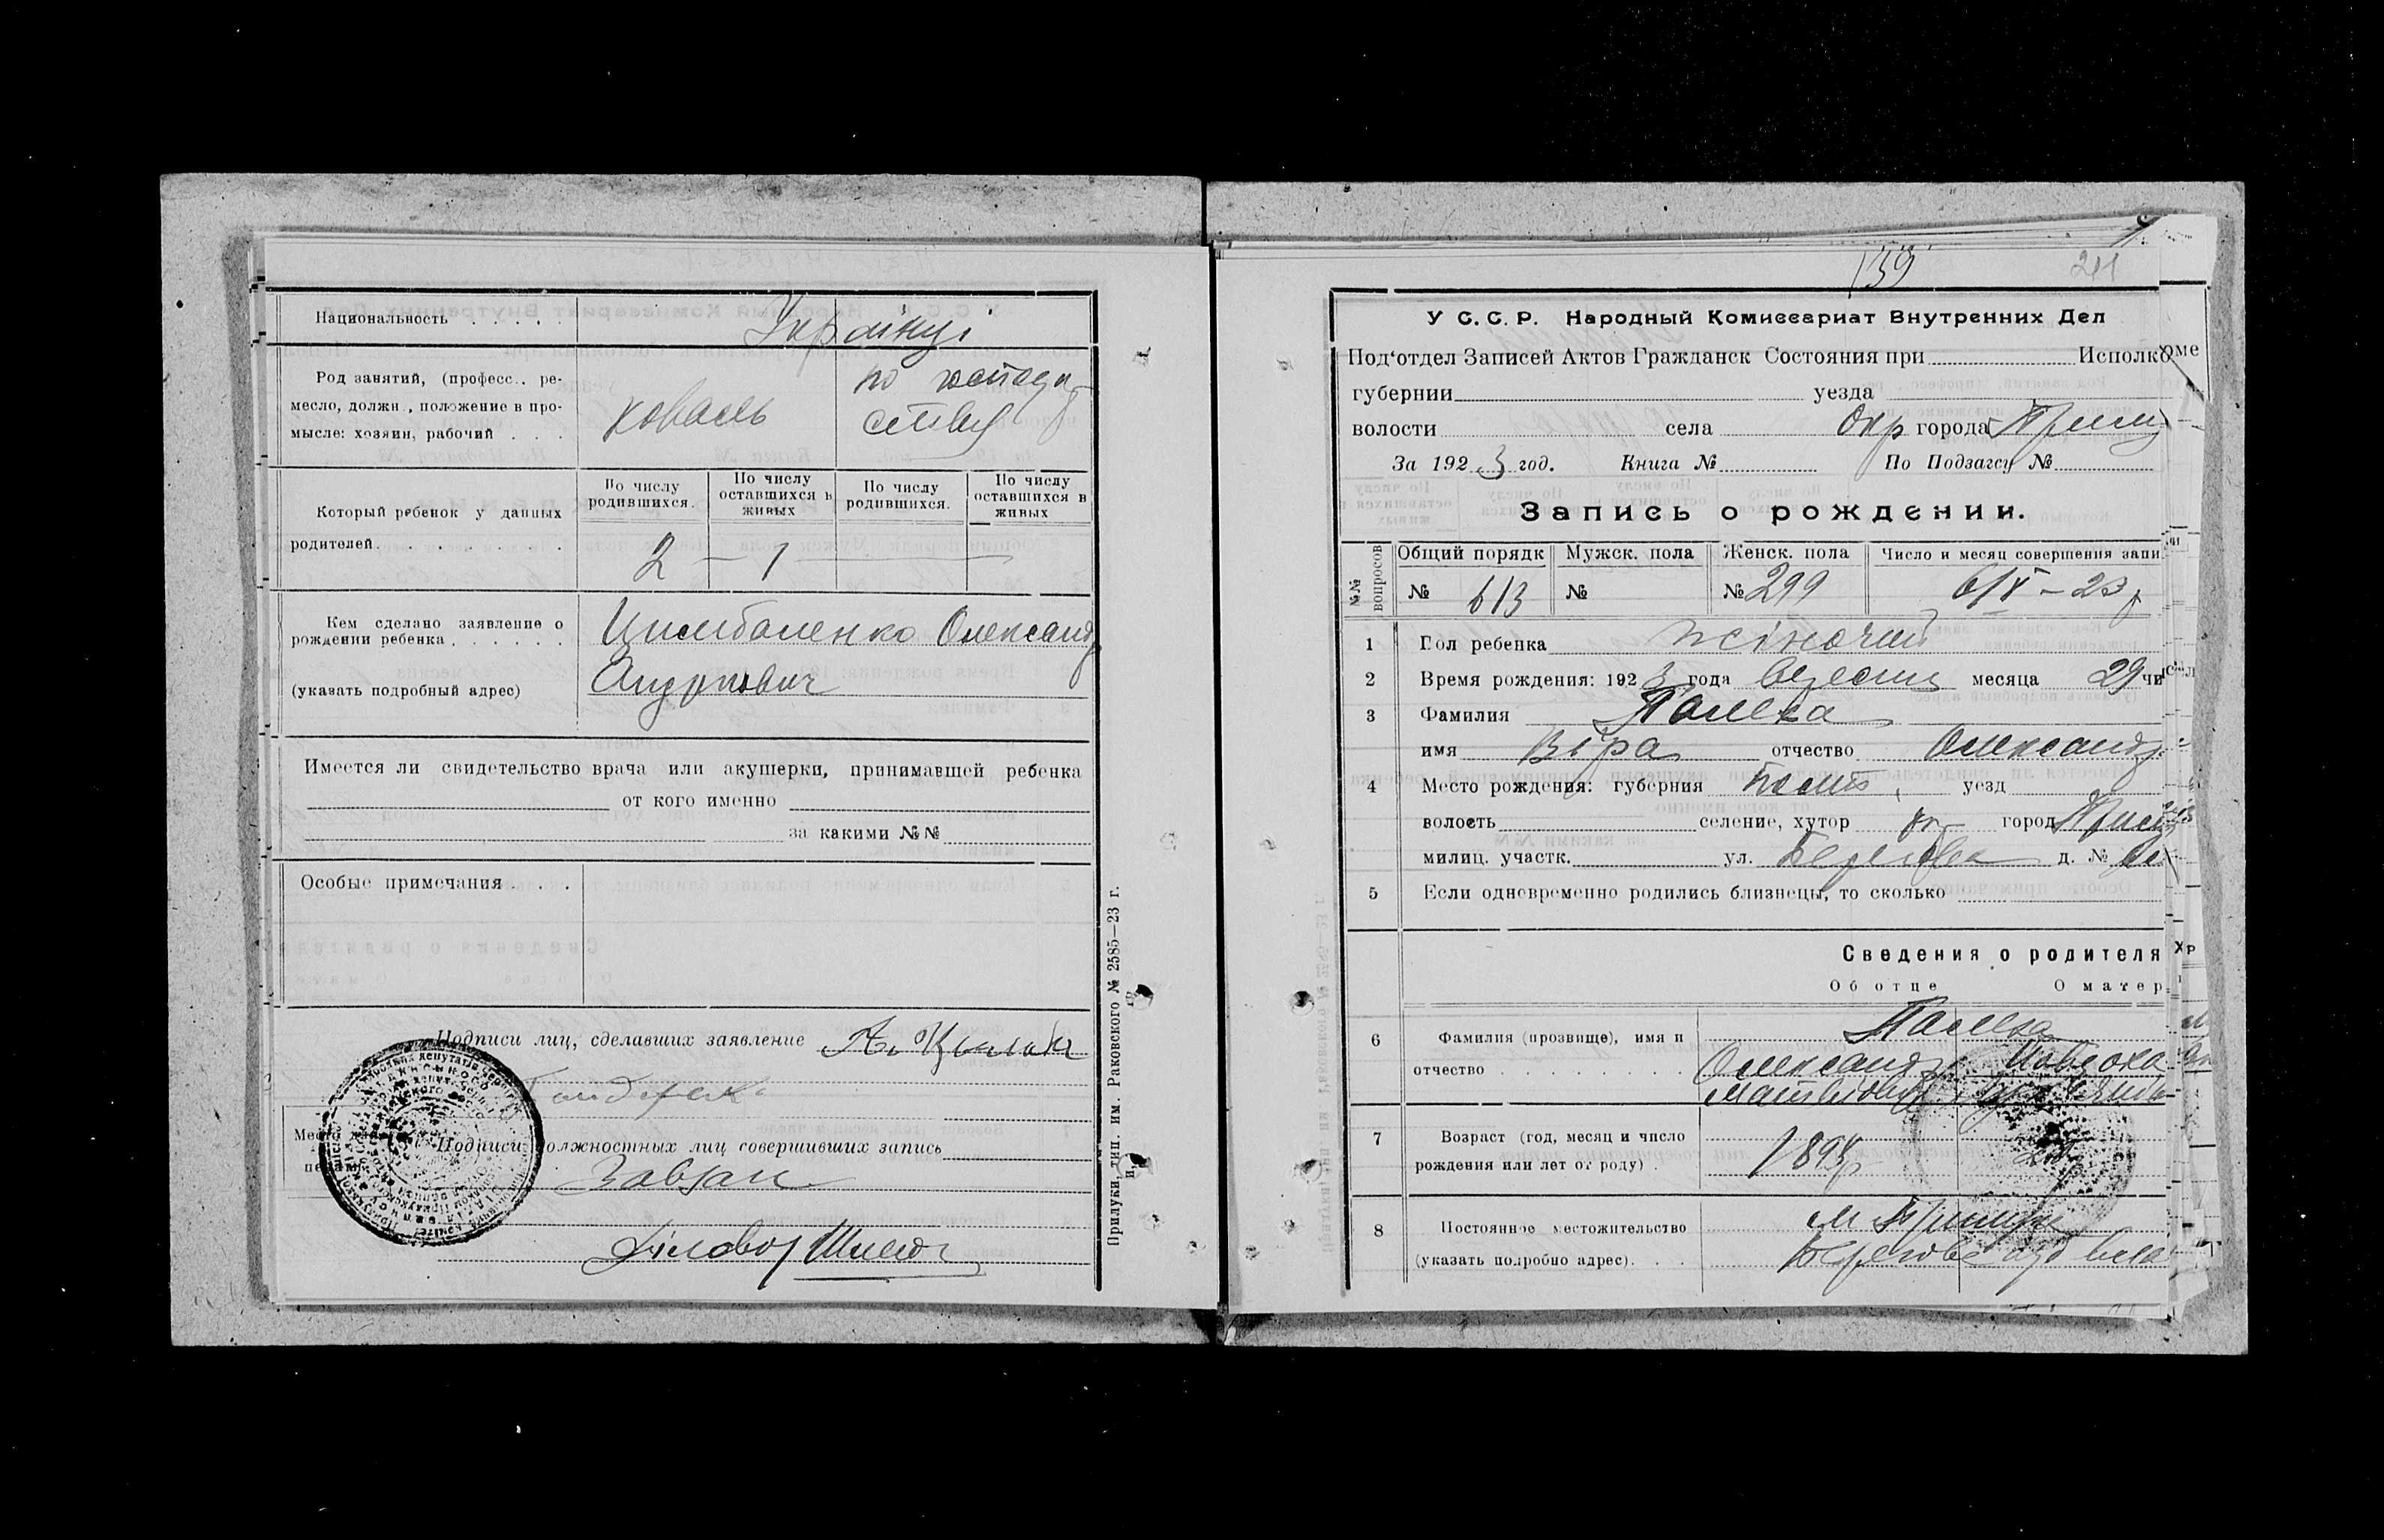 Национальность . . . . . Українці
Род занятий, (професс.. ре-
месло, должн., положение в про-
мысле: хозяин, рабочий . . . коваль по господар
ству
Который ребенок у данных
родителей. . . . . . . .
По числу родившихся. По числу оставшихся в живых По числу родившихся. По числу оставшихся в живых
2 — 1 —
Кем сделано заявление о
рождении ребенка . . . . . . Цимбаленко Олександр
(указать подробный адрес) Андріович
Имеется ли свидетельство врача или акушерки, принимавшей ребенка
от кого именно
за какими №№
Особые примечания . . .
Подписи лиц, сделавших заявление
Место
печати
Подписи должностных лиц совершивших запись
Завзаг
Діловод
Прилуки, тип. им. Раковского № 2585—23 г.
159 211
У С. С. Р. Народный Комиссариат Внутренних Дел
Под'отдел Записей Актов Гражданск Состояния при Исполко
губернии уезда
волости села Окр города Прилу
За 1923 год. Книга № По Подзагсу №
Запись о рождении.
№№ вопросов
Общий порядк Мужск. пола Женск. пола Число и месяц совершения запи
№ 613 № № 299 6/X – 23 р
1 Пол ребенка жіночий
2 Время рождения: 1923 года вересня месяца 29 чи
3 Фамилия
имя Віра отчество Олександр
4 Место рождения: губерния Полт. уезд
волость селение, хутор город Прилу
милиц. участк. ул. Берегова д. №
5 Если одновременно родились близнецы, то сколько
Сведения о родителя
Об отце О матер
6 Фамилия (прозвище), имя и
отчество . . . . . . . . Олександр
Матвійович
7 Возраст (год, месяц и число
рождения или лет от роду) .
8 Постоянное местожительство м Прилуки
(указать подробно адрес). . . Берегова